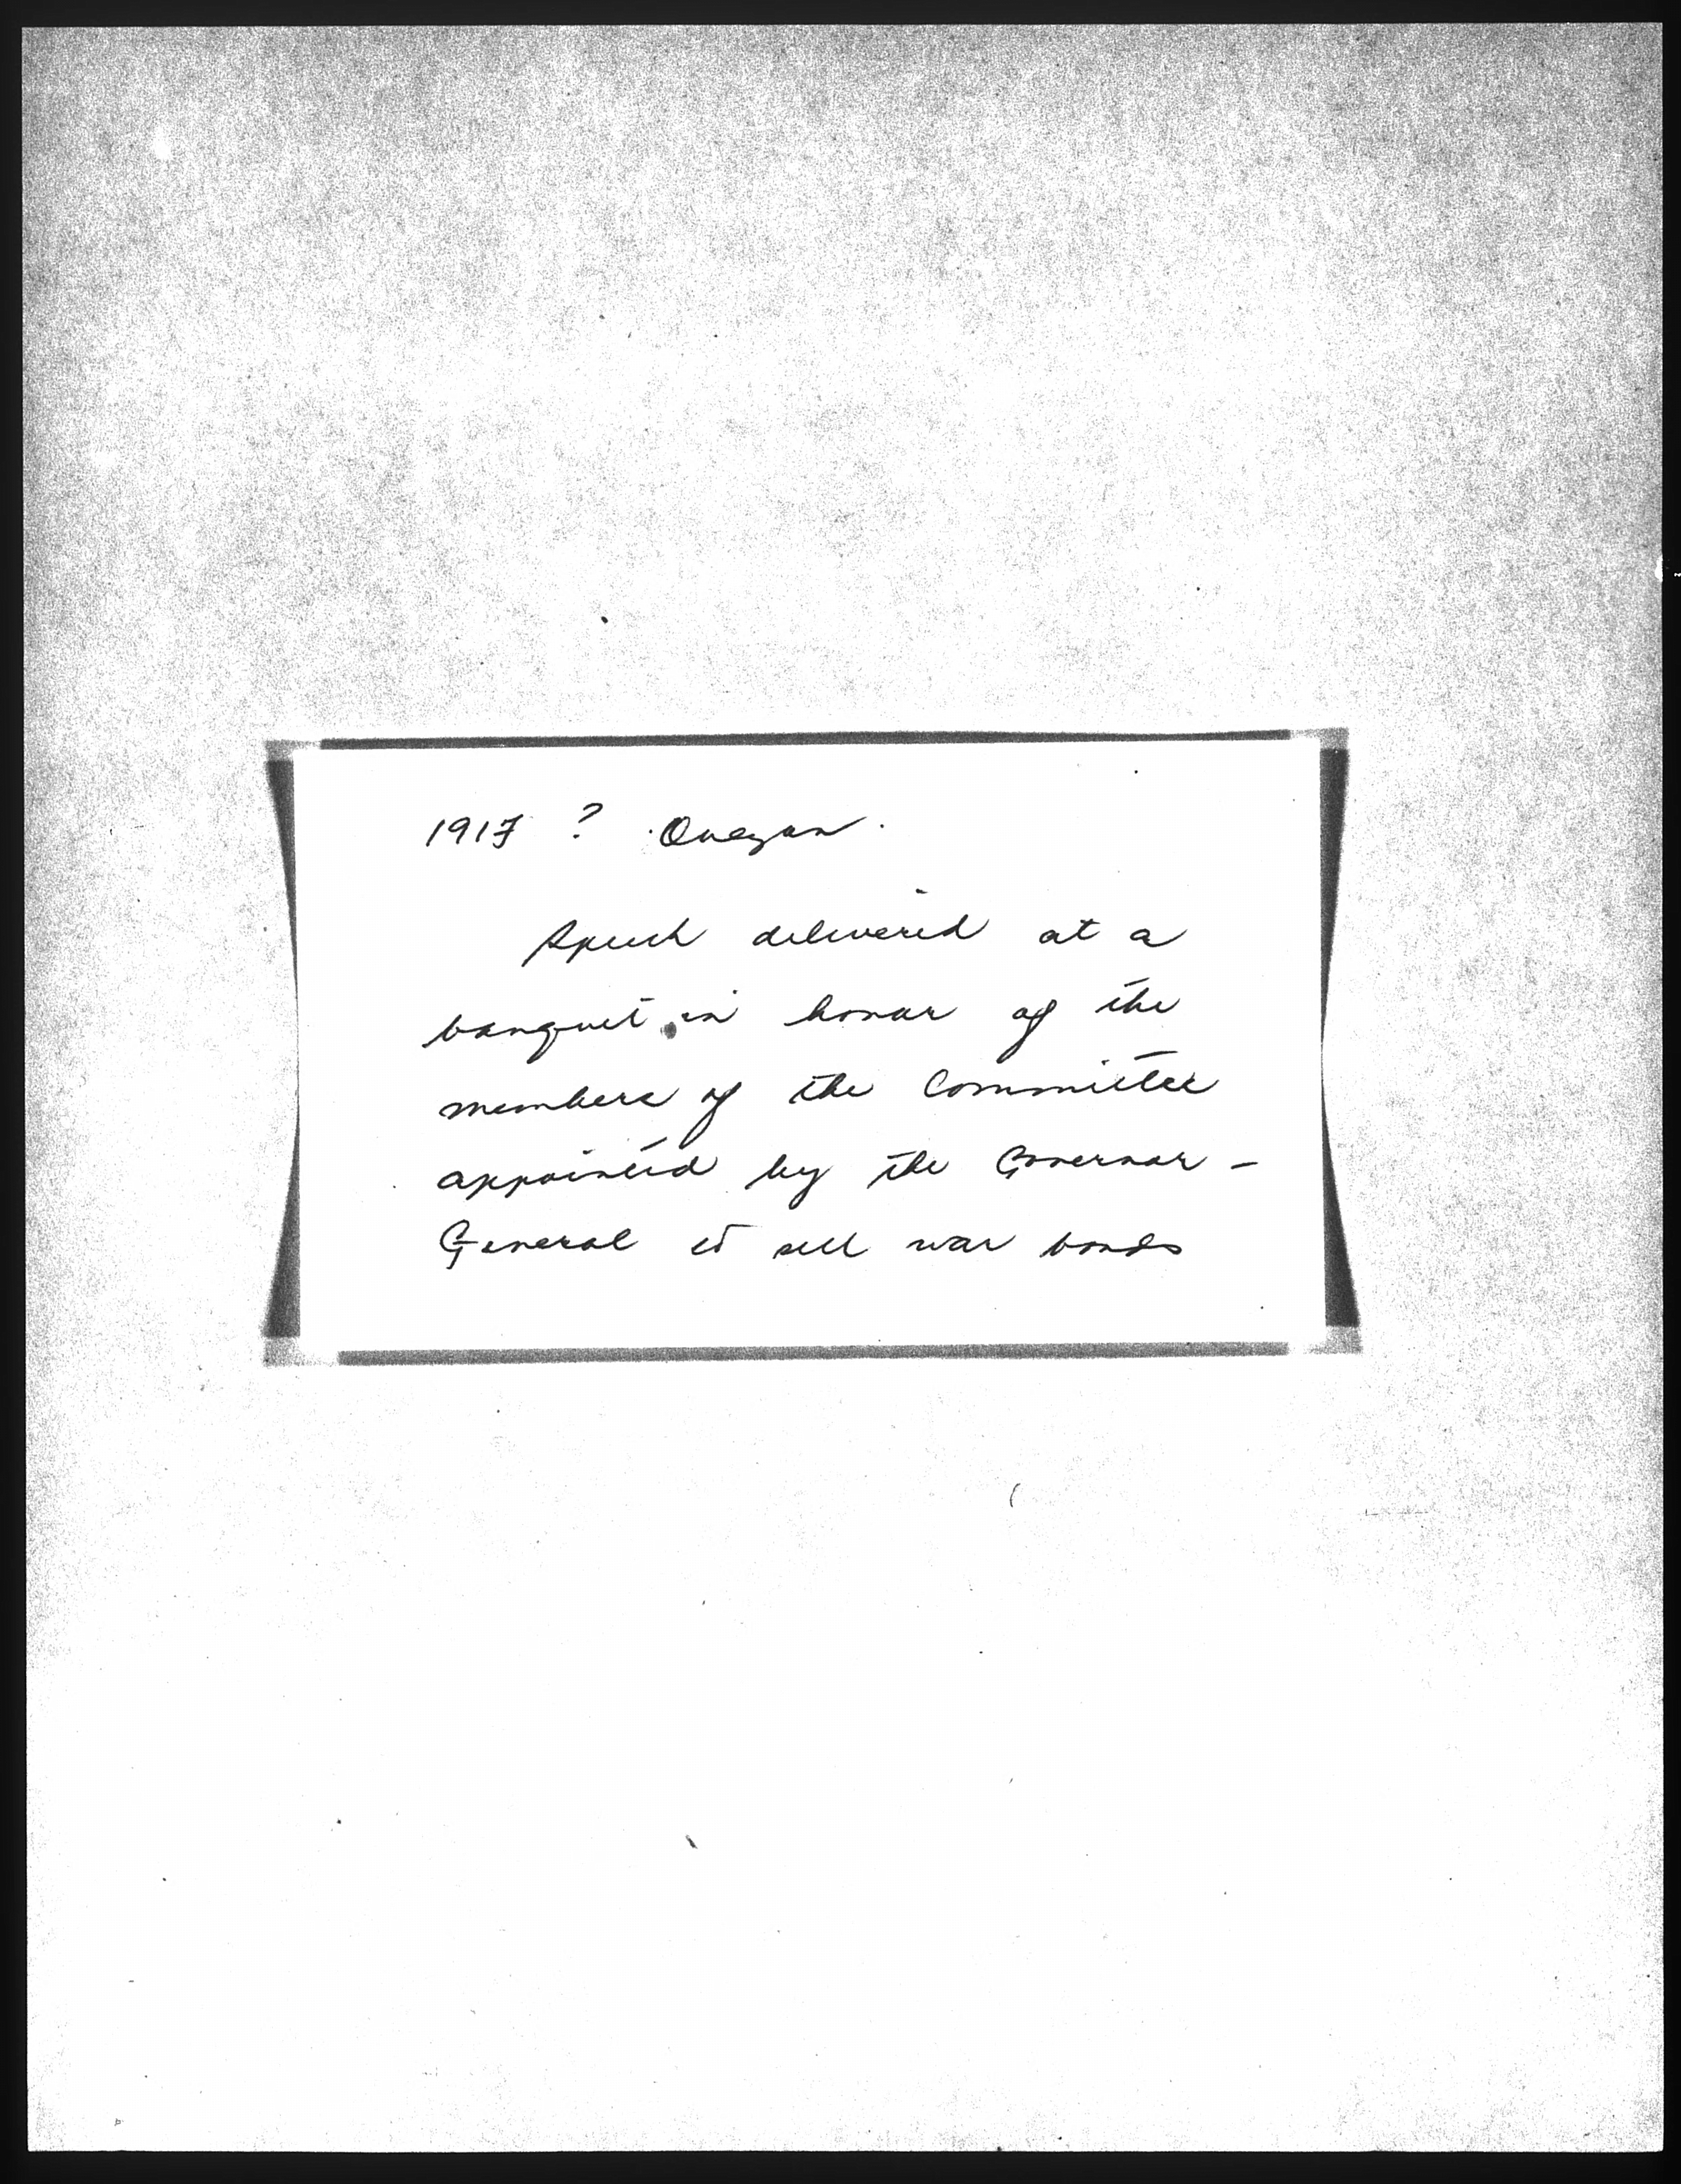 1917 ? Quezon.
Speech delivered at a
banquet in honor of the
members of the Committee
appointed by the Governor-
General to sell war bonds